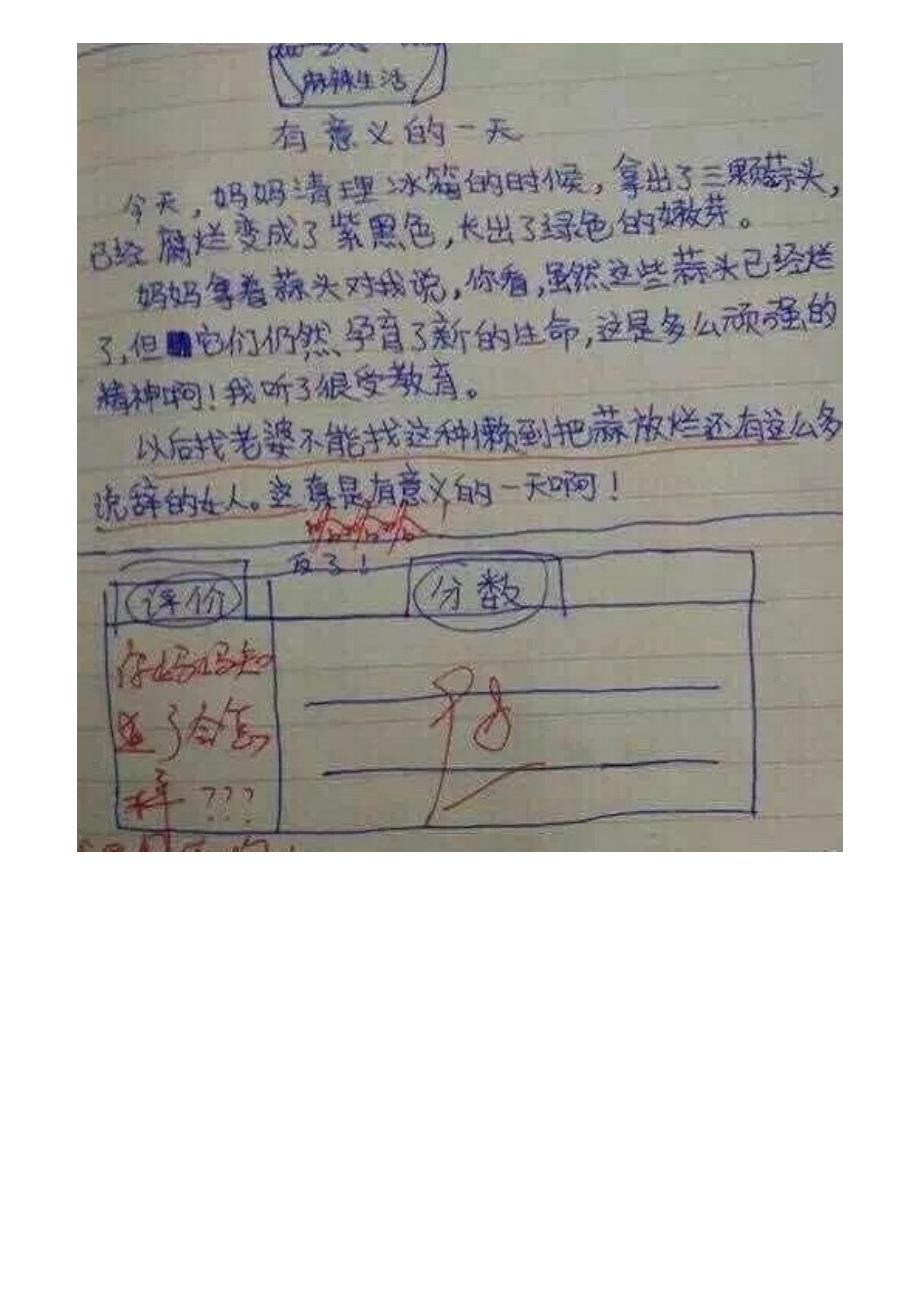 麻辣生活
有意义的一天
今天，妈妈清理冰箱的时候，拿出了三颗蒜头，
已经腐烂变成了紫黑色，长出了绿色的嫩芽。
妈妈拿着蒜头对我说，你看，虽然这些蒜头已经烂
了，但它们仍然孕育了新的生命，这是多么顽强的
精神啊！我听了很受教育。
以后找老婆不能找这种懒到把蒜放烂还有这么多
说辞的女人。这真是有意义的一天啊！
评价
分数
你妈妈知
道了会怎
样???